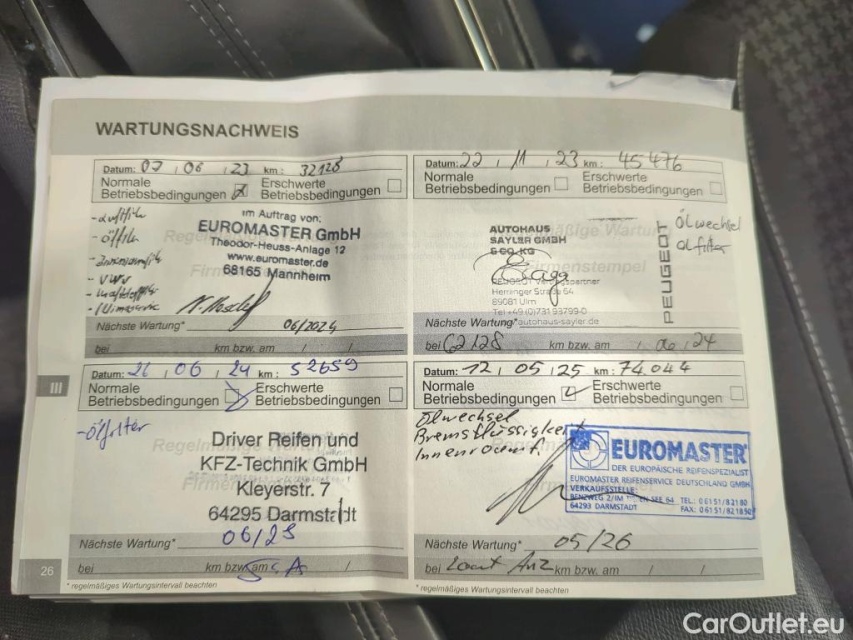 WARTUNGSNACHWEIS
Datum: 07 / 06 / 23 km: 32128
Normale Betriebsbedingungen
Erschwerte Betriebsbedingungen
- Luftfilt
- Ölfilt
im Auftrag von:
EUROMASTER GmbH
Theodor-Heuss-Anlage 12
www.euromaster.de
68165 Mannheim
Nächste Wartung* 06/2024
bei km bzw. am / /
Datum: 22 / 11 / 23 km: 45476
Normale Betriebsbedingungen
Erschwerte Betriebsbedingungen
AUTOHAUS
SAYLER GMBH
& CO. KG
89081 Ulm
Tel +49 (0)731 93799-0
autohaus-sayler.de
PEUGEOT
Ölwechsel
Ölfilter
Nächste Wartung*
bei 62128 km bzw. am / 06 / 24
III
Datum: 26 / 06 / 24 km: 52659
Normale Betriebsbedingungen
Erschwerte Betriebsbedingungen
- Ölfilter
Driver Reifen und
KFZ-Technik GmbH
Kleyerstr. 7
64295 Darmstadt
Nächste Wartung* 06/25
bei km bzw. am / /
Datum: 12 / 05 / 25 km: 74044
Normale Betriebsbedingungen
Erschwerte Betriebsbedingungen
Ölwechsel
Bremsflüssigkeit
Innenraumf.
EUROMASTER
DER EUROPÄISCHE REIFENSPEZIALIST
EUROMASTER REIFENSERVICE DEUTSCHLAND GMBH
VERKAUFSSTELLE:
TEL.: 06151/82180
64293 DARMSTADT FAX: 06151/821850
Nächste Wartung* 05/26
bei Laut Anz km bzw. am / /
26
* regelmäßiges Wartungsintervall beachten
* regelmäßiges Wartungsintervall beachten
CarOutlet.eu